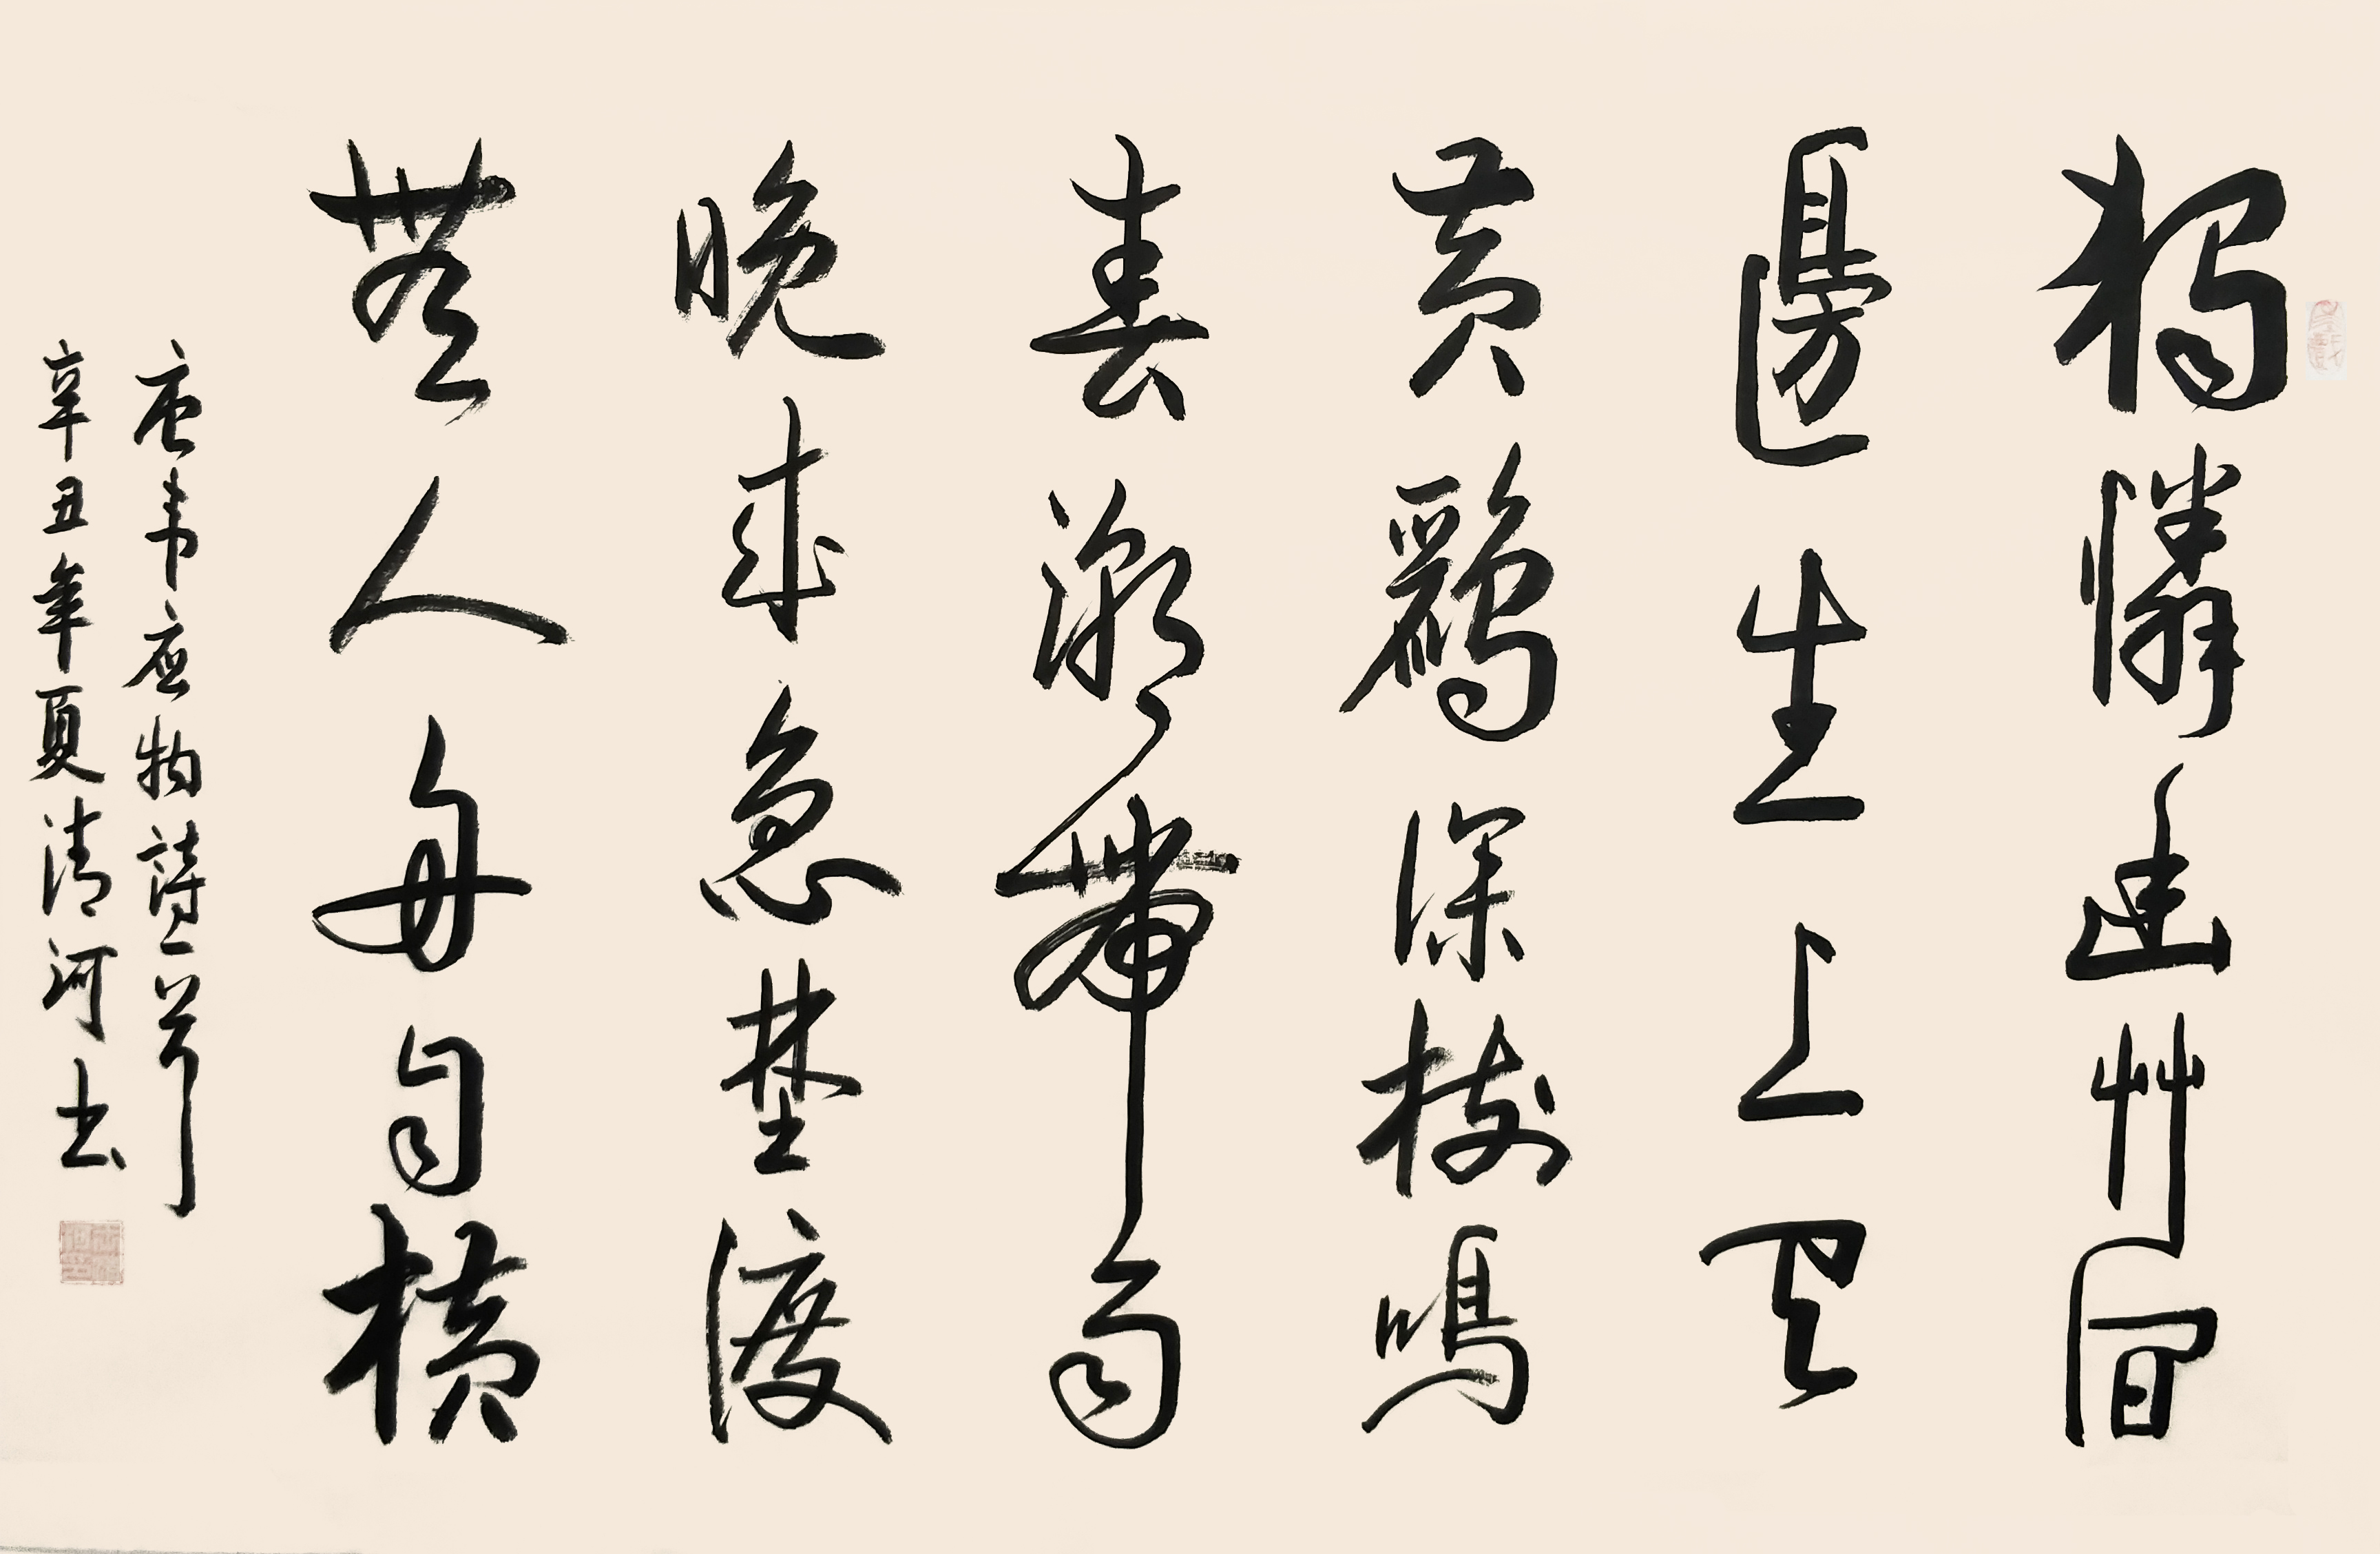 獨憐幽艸澗
邊生上有
黃鸝深樹鳴
春潮帶雨
晚來急埜渡
無人舟自橫
唐韋應物詩一首
辛丑年夏清河書